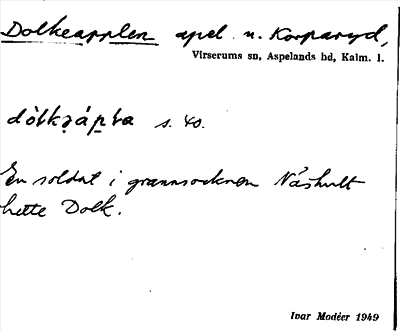 Dolkeapplen apel n. Korparyd,
Virserums sn, Aspelands hd, Kalm. l.
s. 40.
En soldat i grannsocknen Näshult
hette Dolk.
Ivar Modéer 1949